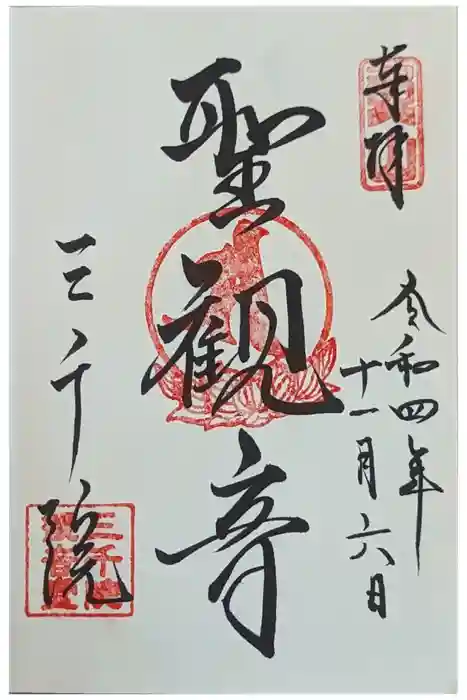 奉拝
令和四年
十一月六日
聖観音
三千院